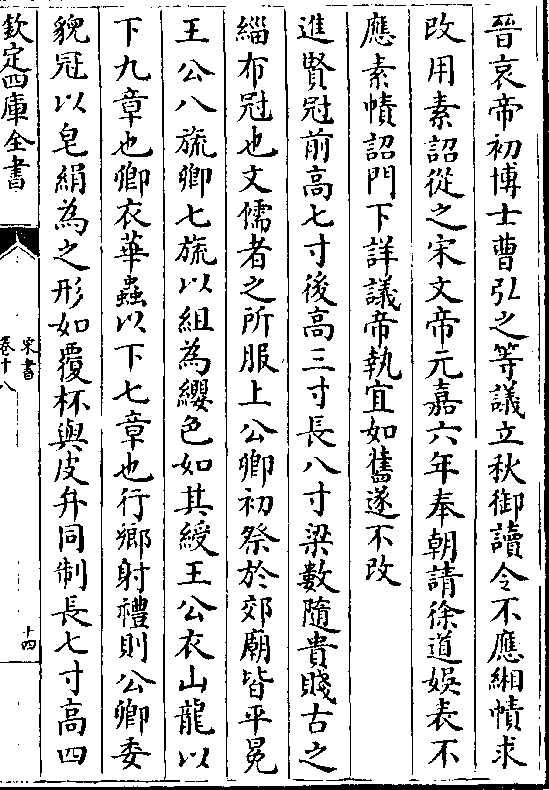 晉哀帝初博士曹弘之等議立秋御讀令不應緗幘求
改用素詔從之宋文帝元嘉六年奉朝請徐道娛表不
應素幘詔門下詳議帝執宜如舊遂不改
進賢冠前高七寸後高三寸長八寸梁數隨貴賤古之
緇布冠也文儒者之所服上公卿初祭於郊廟皆平冕
王公八旒卿七旒以組為纓色如其綬王公衣山龍以
下九章也卿衣華蟲以下七章也行鄉射禮則公卿委
貌冠以皂絹為之形如覆杯與皮弁同制長七寸高四
欽定四庫全書
宋書
卷十八
十四